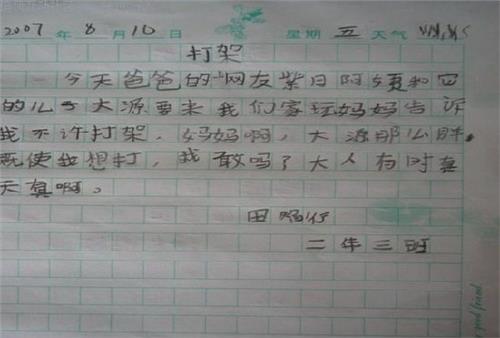 2007 年 8 月 10 日 星期 五 天气
打架
今天爸爸的网友紫日阿姨和它
的儿子大源要来我们家玩妈妈告诉
我不许打架，妈妈啊，大源那么胖，
既使我想打，我敢吗？大人有时真
天真啊。
田
二年三班
good friend